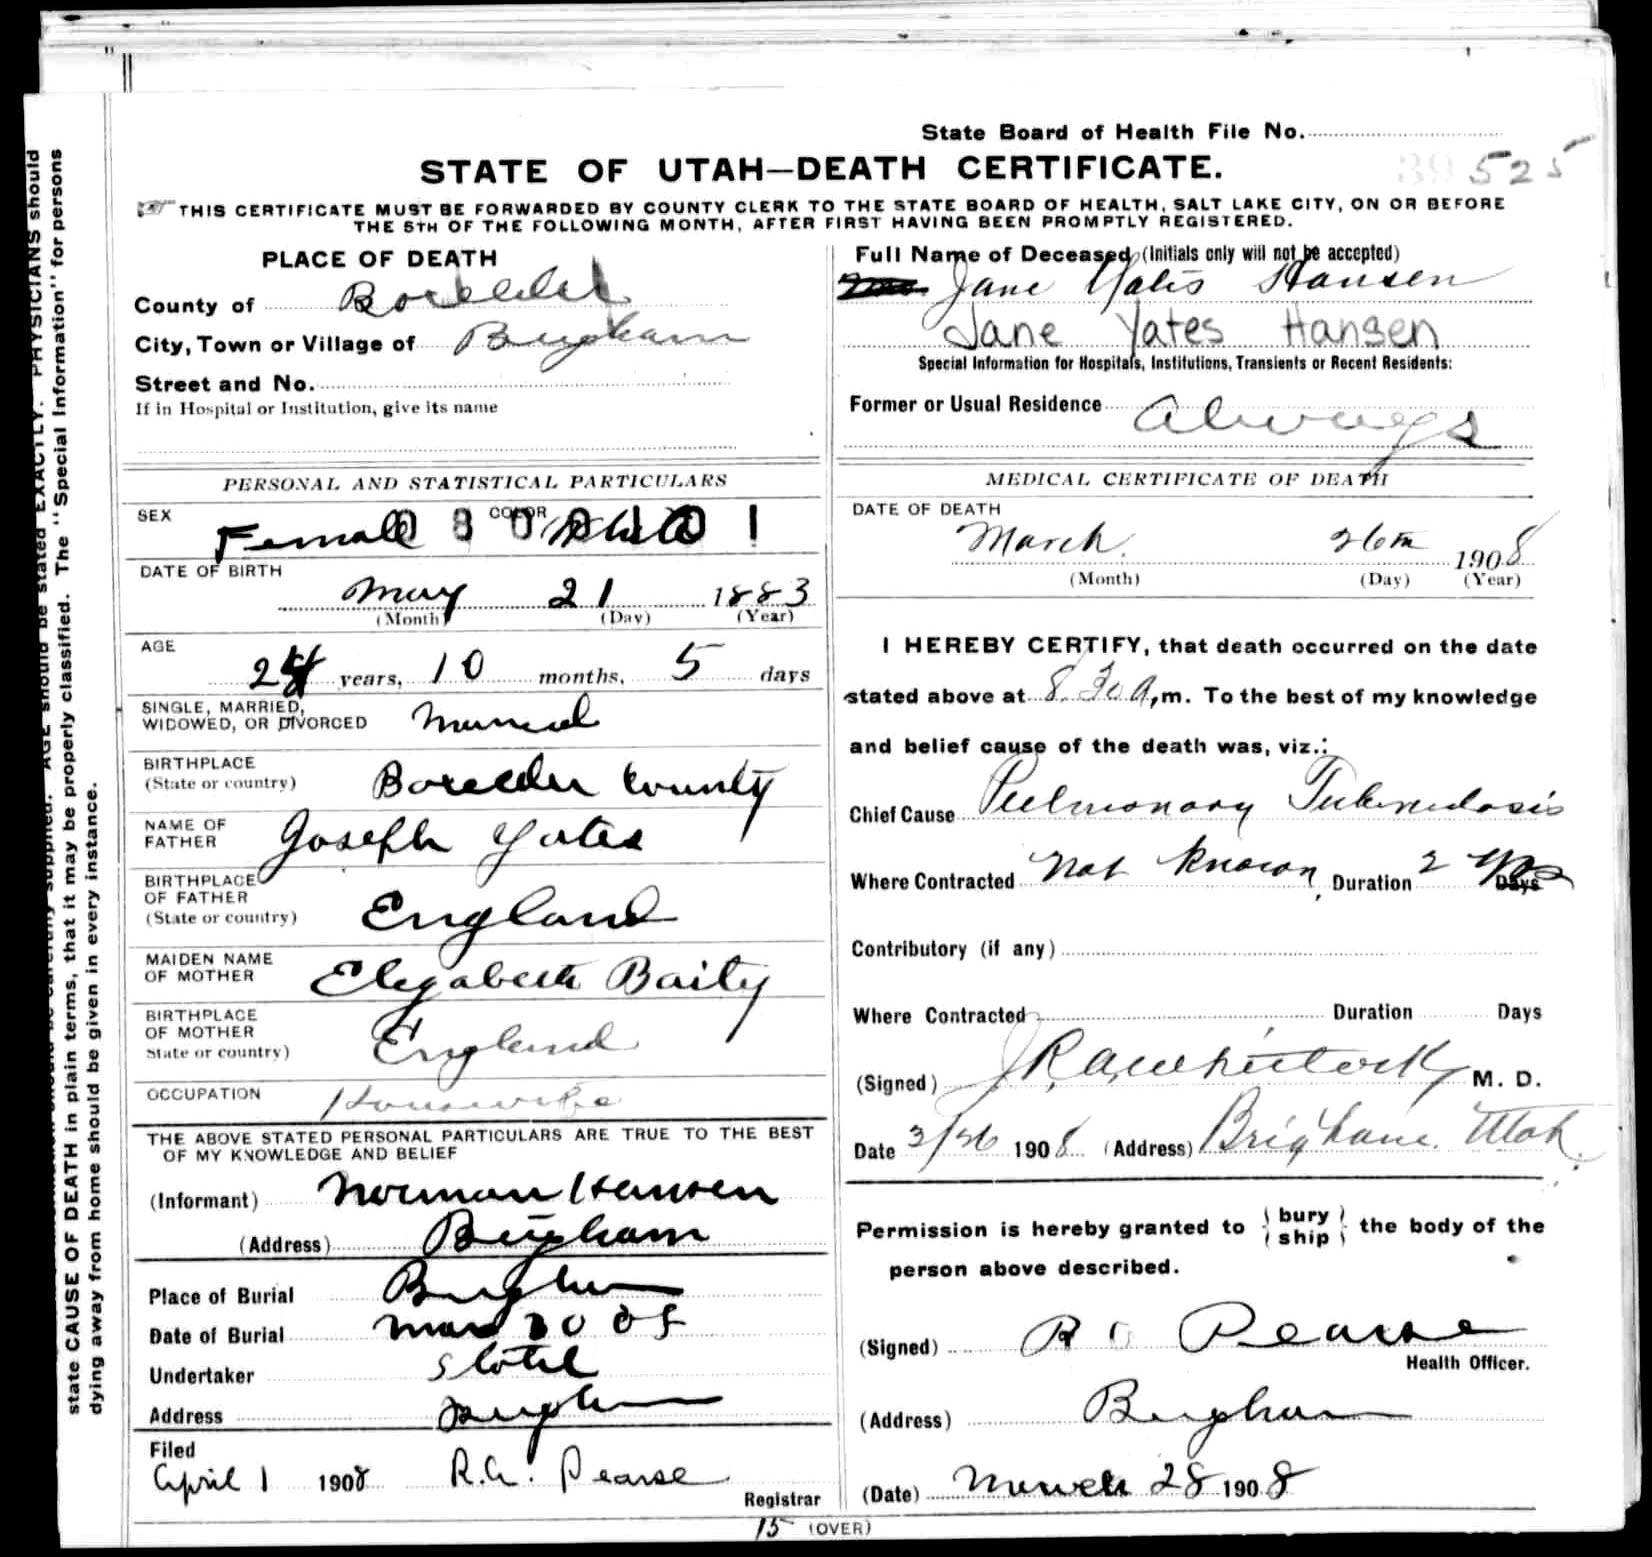 State Board of Health File No.
STATE OF UTAH—DEATH CERTIFICATE.
525
THIS CERTIFICATE MUST BE FORWARDED BY COUNTY CLERK TO THE STATE BOARD OF HEALTH, SALT LAKE CITY, ON OR BEFORE
THE 5TH OF THE FOLLOWING MONTH, AFTER FIRST HAVING BEEN PROMPTLY REGISTERED.
PLACE OF DEATH
County of Boxelder
City, Town or Village of Brigham
Street and No.
If in Hospital or Institution, give its name
Full Name of Deceased (Initials only will not be accepted)
Jane Yates Hansen
Jane Yates Hansen
Special Information for Hospitals, Institutions, Transients or Recent Residents:
Former or Usual Residence Always
PERSONAL AND STATISTICAL PARTICULARS
SEX Female COLOR White
DATE OF BIRTH
May 21 1883
(Month) (Day) (Year)
AGE
24 years, 10 months, 5 days
SINGLE, MARRIED,
WIDOWED, OR DIVORCED Married
BIRTHPLACE
(State or country) Boxelder County
NAME OF
FATHER Joseph Yates
BIRTHPLACE
OF FATHER
(State or country) England
MAIDEN NAME
OF MOTHER Elizabeth Baity
BIRTHPLACE
OF MOTHER
State or country) England
OCCUPATION Housewife
THE ABOVE STATED PERSONAL PARTICULARS ARE TRUE TO THE BEST
OF MY KNOWLEDGE AND BELIEF
(Informant) Norman Hansen
(Address) Brigham
Place of Burial Brigham
Date of Burial Mar 30 08
Undertaker
Address Brigham
Filed
April 1 1908 R.A. Pearse
Registrar
MEDICAL CERTIFICATE OF DEATH
DATE OF DEATH
March 26th 1908
(Month) (Day) (Year)
I HEREBY CERTIFY, that death occurred on the date
stated above at 8.30 A,m. To the best of my knowledge
and belief cause of the death was, viz.:
Chief Cause Pulmonary Tuberculosis
Where Contracted Not Known, Duration 2 Yrs Days
Contributory (if any)
Where Contracted Duration Days
(Signed) M. D.
Date 3/26 1908 (Address) Brigham. Utah.
Permission is hereby granted to { bury ship } the body of the
person above described.
(Signed) Pearse
Health Officer.
(Address) Brigham
(Date) March 28 1908
15 (OVER)
state CAUSE OF DEATH in plain terms, that it may be properly classified. The "Special Information" for persons
dying away from home should be given in every instance.